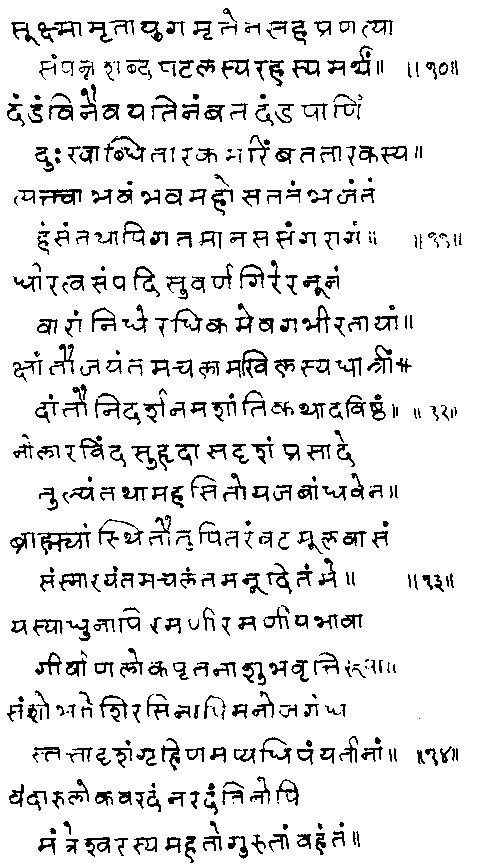 सूक्ष्मामृतायुगमृतेनसह प्रणत्या
संपन्नशब्दपटलस्यरहस्यमर्थं॥ ॥१०॥
दंडंविनैवयतिनंबतदंडपाणिं
दुःखाब्धितारकमरिंबततारकस्य॥
त्यक्त्वाभवंभवमहोसततंभजंतं
हंसंतथापिगतमानससंगरागं॥ ॥११॥
धीरत्वसंपदिसुवर्णगिरेरनूनं
वारांनिधेरधिकमेवगभीरतायां॥
क्षांतौजयंतमचलामखिलस्यधात्रीं
दांतौनिदर्शनमशांतिकथादविष्ठं॥ ॥१२॥
नीलारविंदसुहृदासदृशंप्रसादे
तुल्यंतथामहसितोयजबांधवेन॥
ब्राह्म्यांस्थितौतुपितरंवटमूलवासं
संस्मारयंतमचलंतमनूदितंमे॥ ॥१३॥
यस्याधुनापिरमणीरमणीयभावा
गीर्वाणलोकपृतनाशुभवृत्ति
संशोभतेशिरसिनापिमनोजगंध
स्तत्तादृशंगृहिणमप्यधिपंयतीनां॥ ॥१४॥
वंदारुलोकवरदंनरदंतिनोपि
मंत्रेश्वरस्यमहतोगुरुतांवहंतं॥